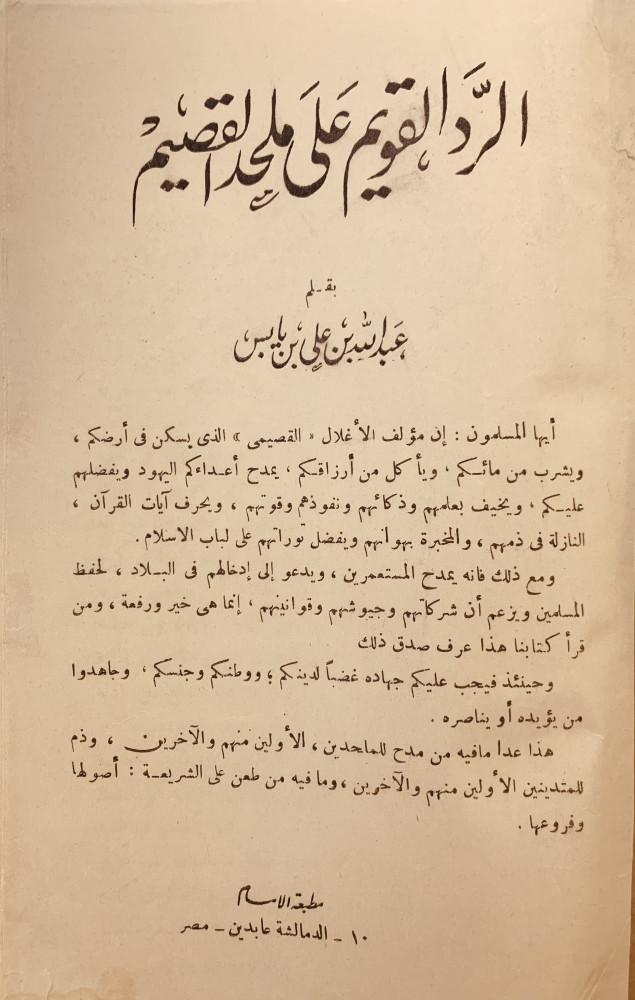 الرَّد القويم عَلَى ملحد القصيم
بقـلم
عَبد الله بن علي بن يابس
أيها المسلمون : إن مؤلف الأغلال « القصيمى » الذى يسكن فى أرضكم ،
ويشرب من مائـكم ، ويأكل من أرزاقـكم ، يمدح أعـداءكم اليهود ويفضلهم
عليـكم ، ويخيف بعلمهم وذكائهم ونفوذهم وقوتهم ، ويحرف آيات القرآن ،
النازلة فى ذمهم ، والمخبرة بهوانهم ويفضل توراتهم على لباب الاسلام .
ومع ذلك فانه يمدح المستعمرين ، ويدعو إلى إدخالهم فى البـلاد ، لحفظ
المسلمين ويزعم أن شركاتهم وجيوشهم وقوانينهم ، إنما هى خير ورفعة ، ومن
قرأ كتابنا هذا عرف صدق ذلك
وحينئذ فيجب عليكم جهاده غضباً لدينكم ؛ ووطنكم وجنسكم ، وجاهدوا
من يؤيده أو يناصره .
هذا عدا مافيه من مدح للملحدين ، الأولين منهم والآخرين ، وذم
للمتدينين الأولين منهم والآخرين ، وما فيه من طعن على الشريعـة : أصولها
وفروعها .
مطبعة الامام
١٠ ـ الدمالشة عابدين ـ مصر